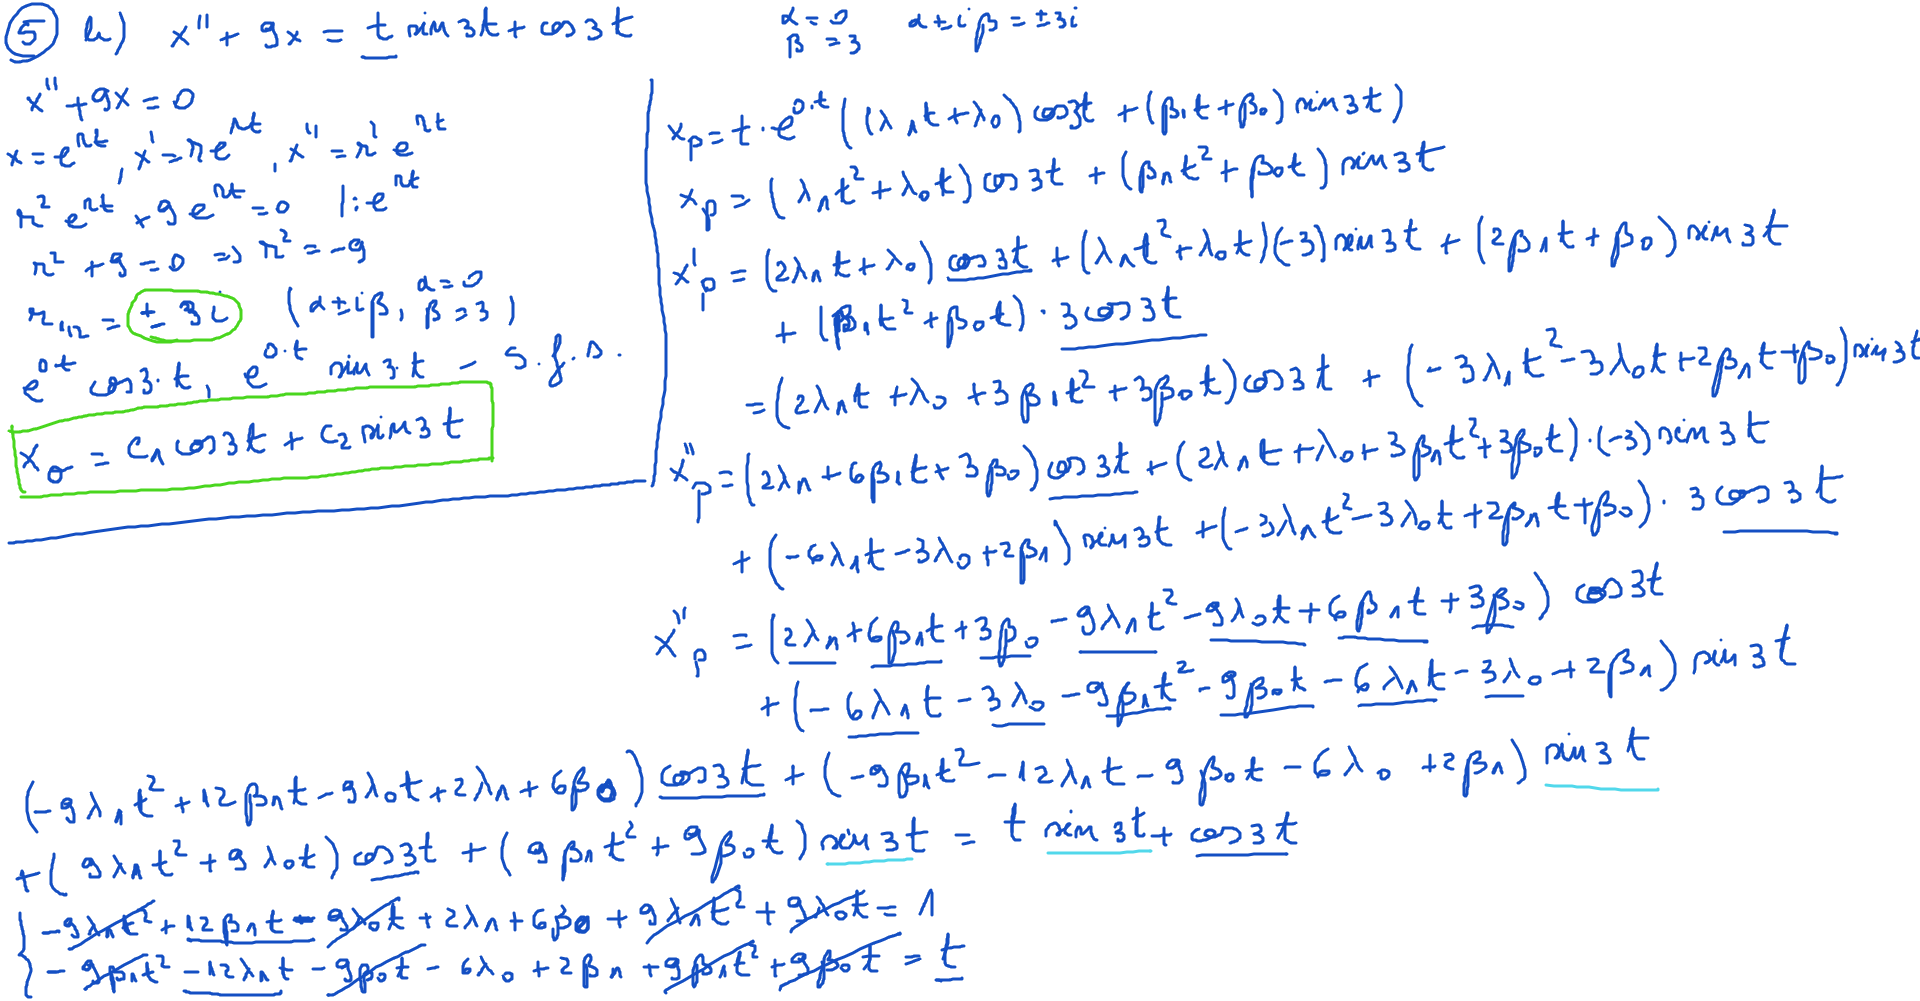 ⑤ h) x'' + 9x = t sin 3t + cos 3t
α = 0 α ± iβ = ±3i
β = 3
x'' + 9x = 0
x = e^{rt}, x' = r e^{rt}, x'' = r² e^{rt}
r² e^{rt} + 9 e^{rt} = 0 |: e^{rt}
r² + 9 = 0 => r² = -9
r_{1,2} = ± 3i (α ± iβ, α = 0, β = 3)
e^{0·t} cos 3·t, e^{0·t} sin 3·t - s.f.s.
x_o = C₁ cos 3t + C₂ sin 3t
x_p = t · e^{0·t} ((λ₁t + λ₀) cos 3t + (β₁t + β₀) sin 3t)
x_p = (λ₁t² + λ₀t) cos 3t + (β₁t² + β₀t) sin 3t
x'_p = (2λ₁t + λ₀) cos 3t + (λ₁t² + λ₀t)(-3) sin 3t + (2β₁t + β₀) sin 3t
+ (β₁t² + β₀t) · 3 cos 3t
= (2λ₁t + λ₀ + 3β₁t² + 3β₀t) cos 3t + (-3λ₁t² - 3λ₀t + 2β₁t + β₀) sin 3t
x''_p = (2λ₁ + 6β₁t + 3β₀) cos 3t + (2λ₁t + λ₀ + 3β₁t² + 3β₀t) · (-3) sin 3t
+ (-6λ₁t - 3λ₀ + 2β₁) sin 3t + (-3λ₁t² - 3λ₀t + 2β₁t + β₀) · 3 cos 3t
x''_p = (2λ₁ + 6β₁t + 3β₀ - 9λ₁t² - 9λ₀t + 6β₁t + 3β₀) cos 3t
+ (-6λ₁t - 3λ₀ - 9β₁t² - 9β₀t - 6λ₁t - 3λ₀ + 2β₁) sin 3t
(-9λ₁t² + 12β₁t - 9λ₀t + 2λ₁ + 6β₀) cos 3t + (-9β₁t² - 12λ₁t - 9β₀t - 6λ₀ + 2β₁) sin 3t
+ (9λ₁t² + 9λ₀t) cos 3t + (9β₁t² + 9β₀t) sin 3t = t sin 3t + cos 3t
{ -9λ₁t² + 12β₁t - 9λ₀t + 2λ₁ + 6β₀ + 9λ₁t² + 9λ₀t = 1
-9β₁t² - 12λ₁t - 9β₀t - 6λ₀ + 2β₁ + 9β₁t² + 9β₀t = t